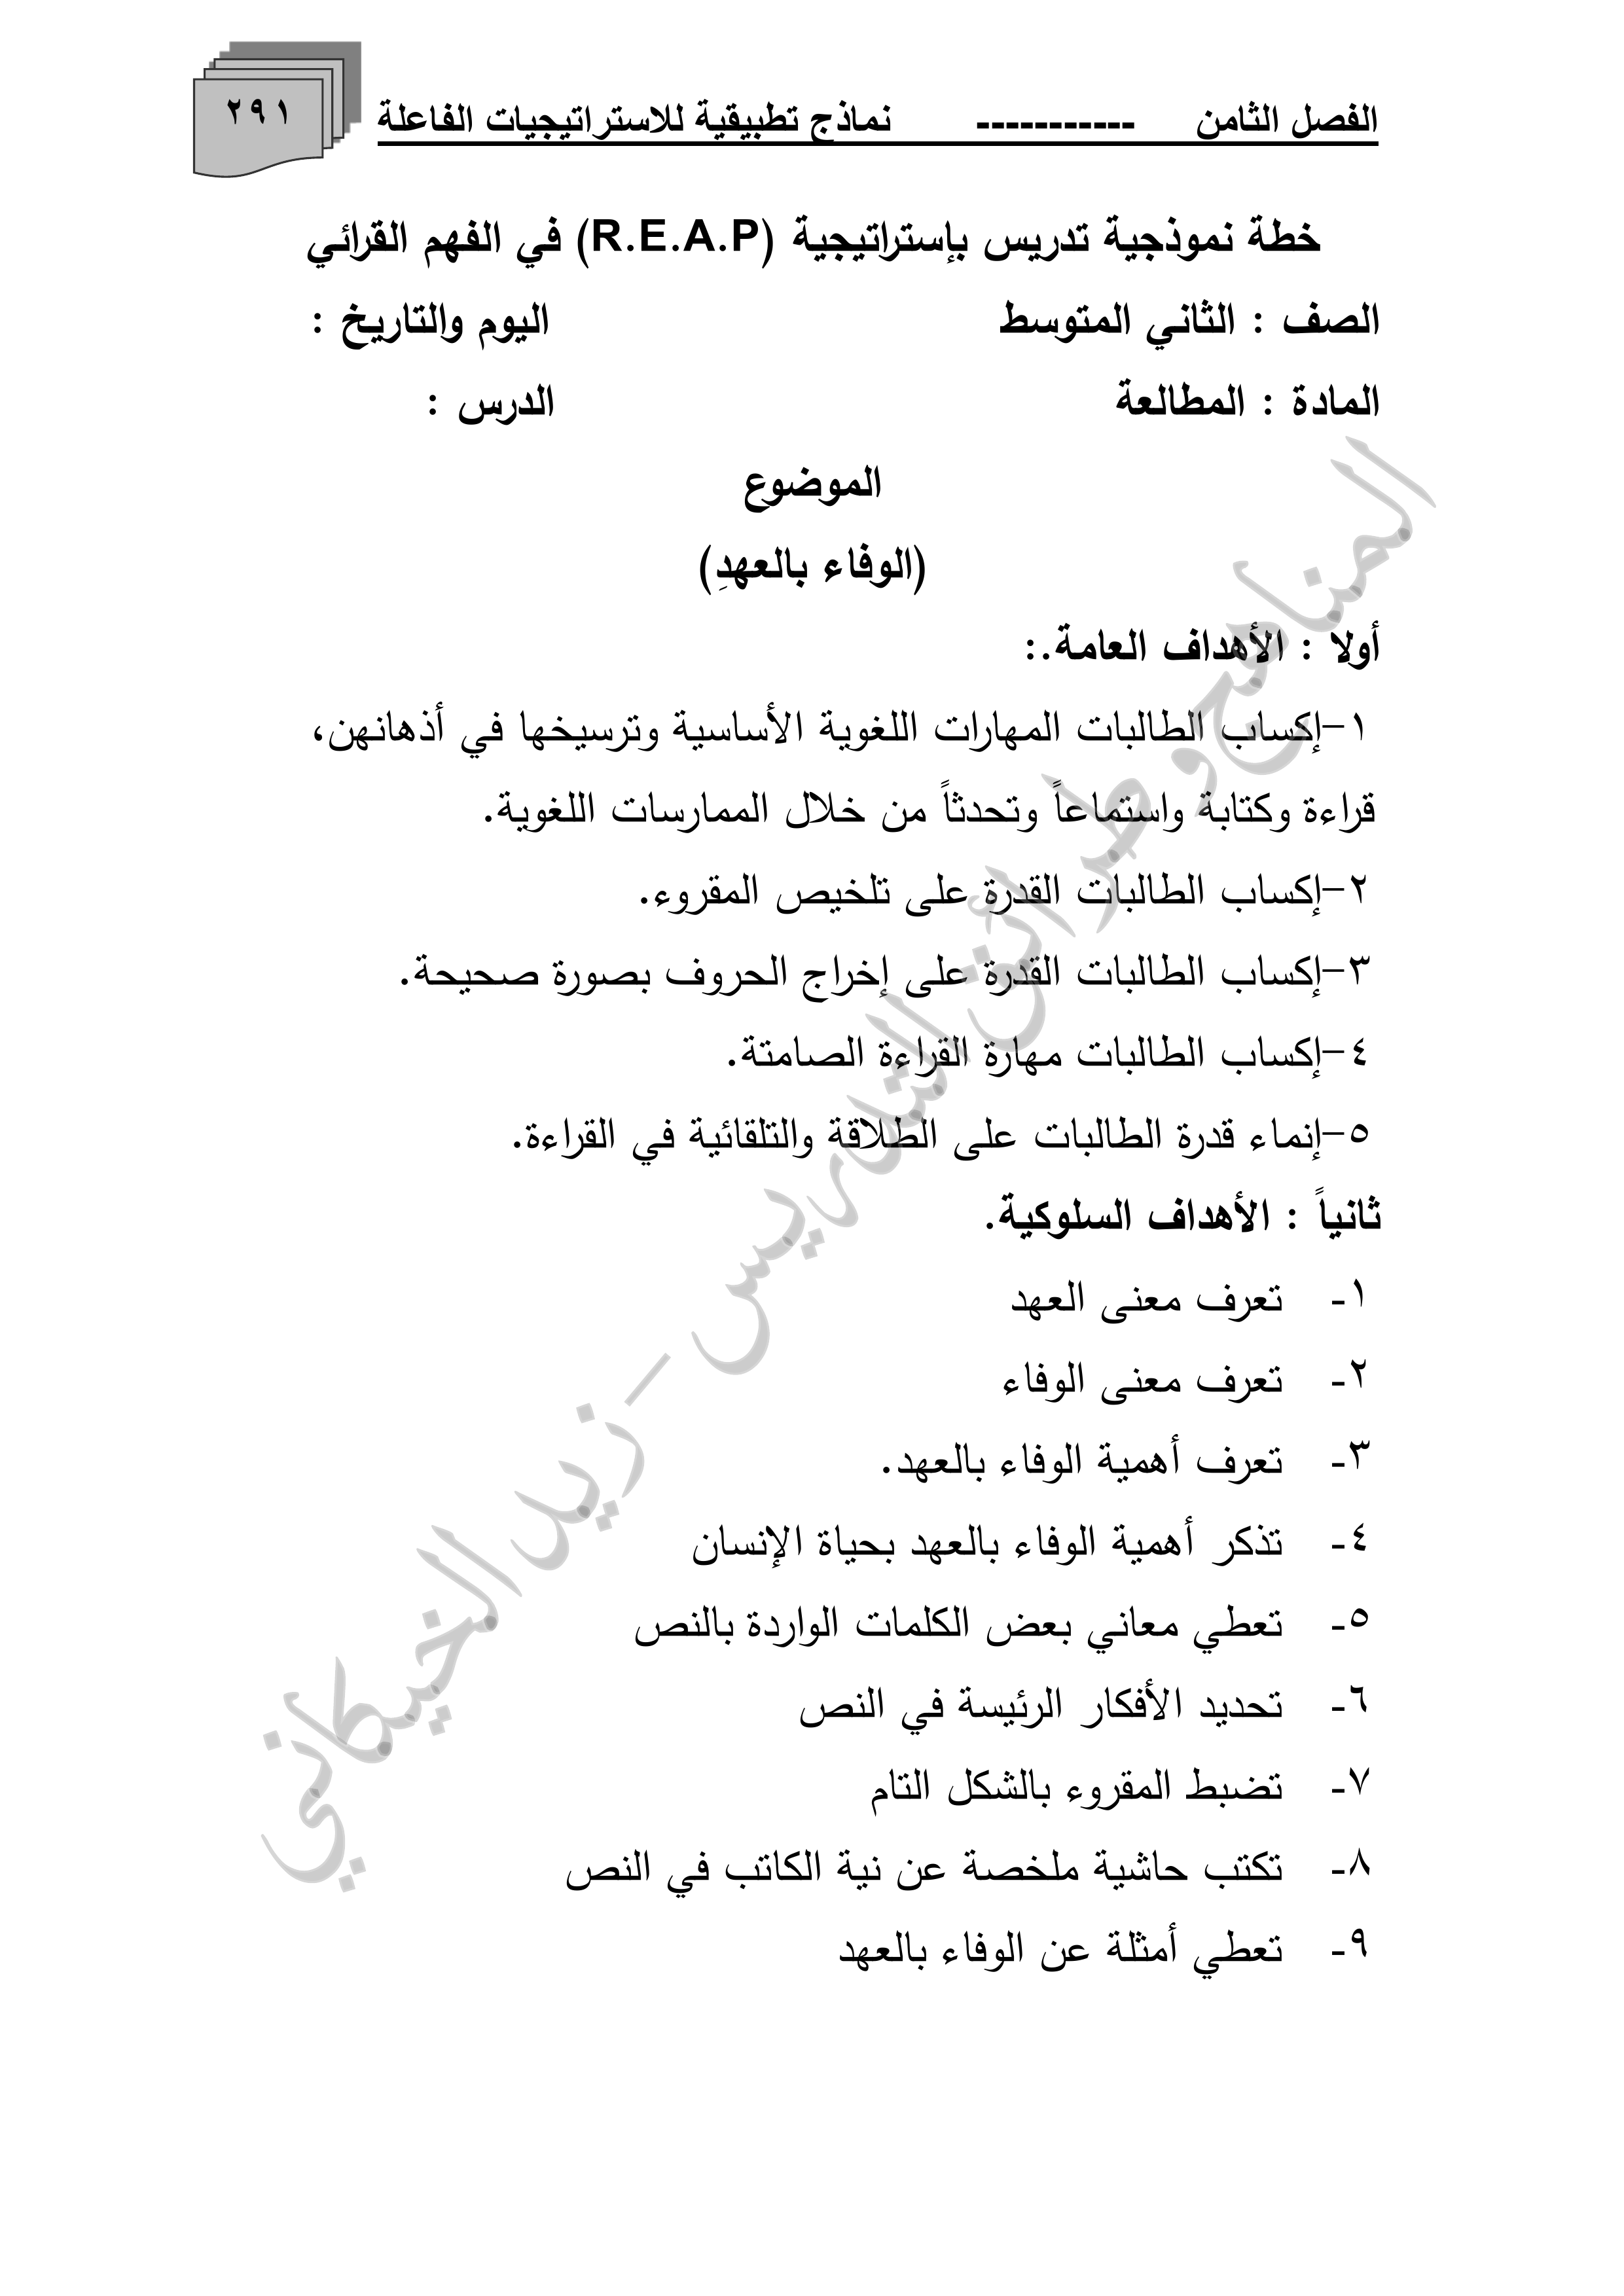 الفصل الثامن ----------- نماذج تطبيقية للاستراتيجيات الفاعلة
٢٩١
خطة نموذجية تدريس بإستراتيجية (R.E.A.P) في الفهم القرائي
الصف : الثاني المتوسط اليوم والتاريخ :
المادة : المطالعة الدرس :
الموضوع
(الوفاء بالعهدِ)
أولا : الأهداف العامة.:
١-إكساب الطالبات المهارات اللغوية الأساسية وترسيخها في أذهانهن،
قراءة وكتابة واستماعاً وتحدثاً من خلال الممارسات اللغوية.
٢-إكساب الطالبات القدرة على تلخيص المقروء.
٣-إكساب الطالبات القدرة على إخراج الحروف بصورة صحيحة.
٤-إكساب الطالبات مهارة القراءة الصامتة.
٥-إنماء قدرة الطالبات على الطلاقة والتلقائية في القراءة.
ثانياً : الأهداف السلوكية.
١- تعرف معنى العهد
٢- تعرف معنى الوفاء
٣- تعرف أهمية الوفاء بالعهد.
٤- تذكر أهمية الوفاء بالعهد بحياة الإنسان
٥- تعطي معاني بعض الكلمات الواردة بالنص
٦- تحديد الأفكار الرئيسة في النص
٧- تضبط المقروء بالشكل التام
٨- تكتب حاشية ملخصة عن نية الكاتب في النص
٩- تعطي أمثلة عن الوفاء بالعهد
المناهج وطرائق التدريس - زيد الخيكاني